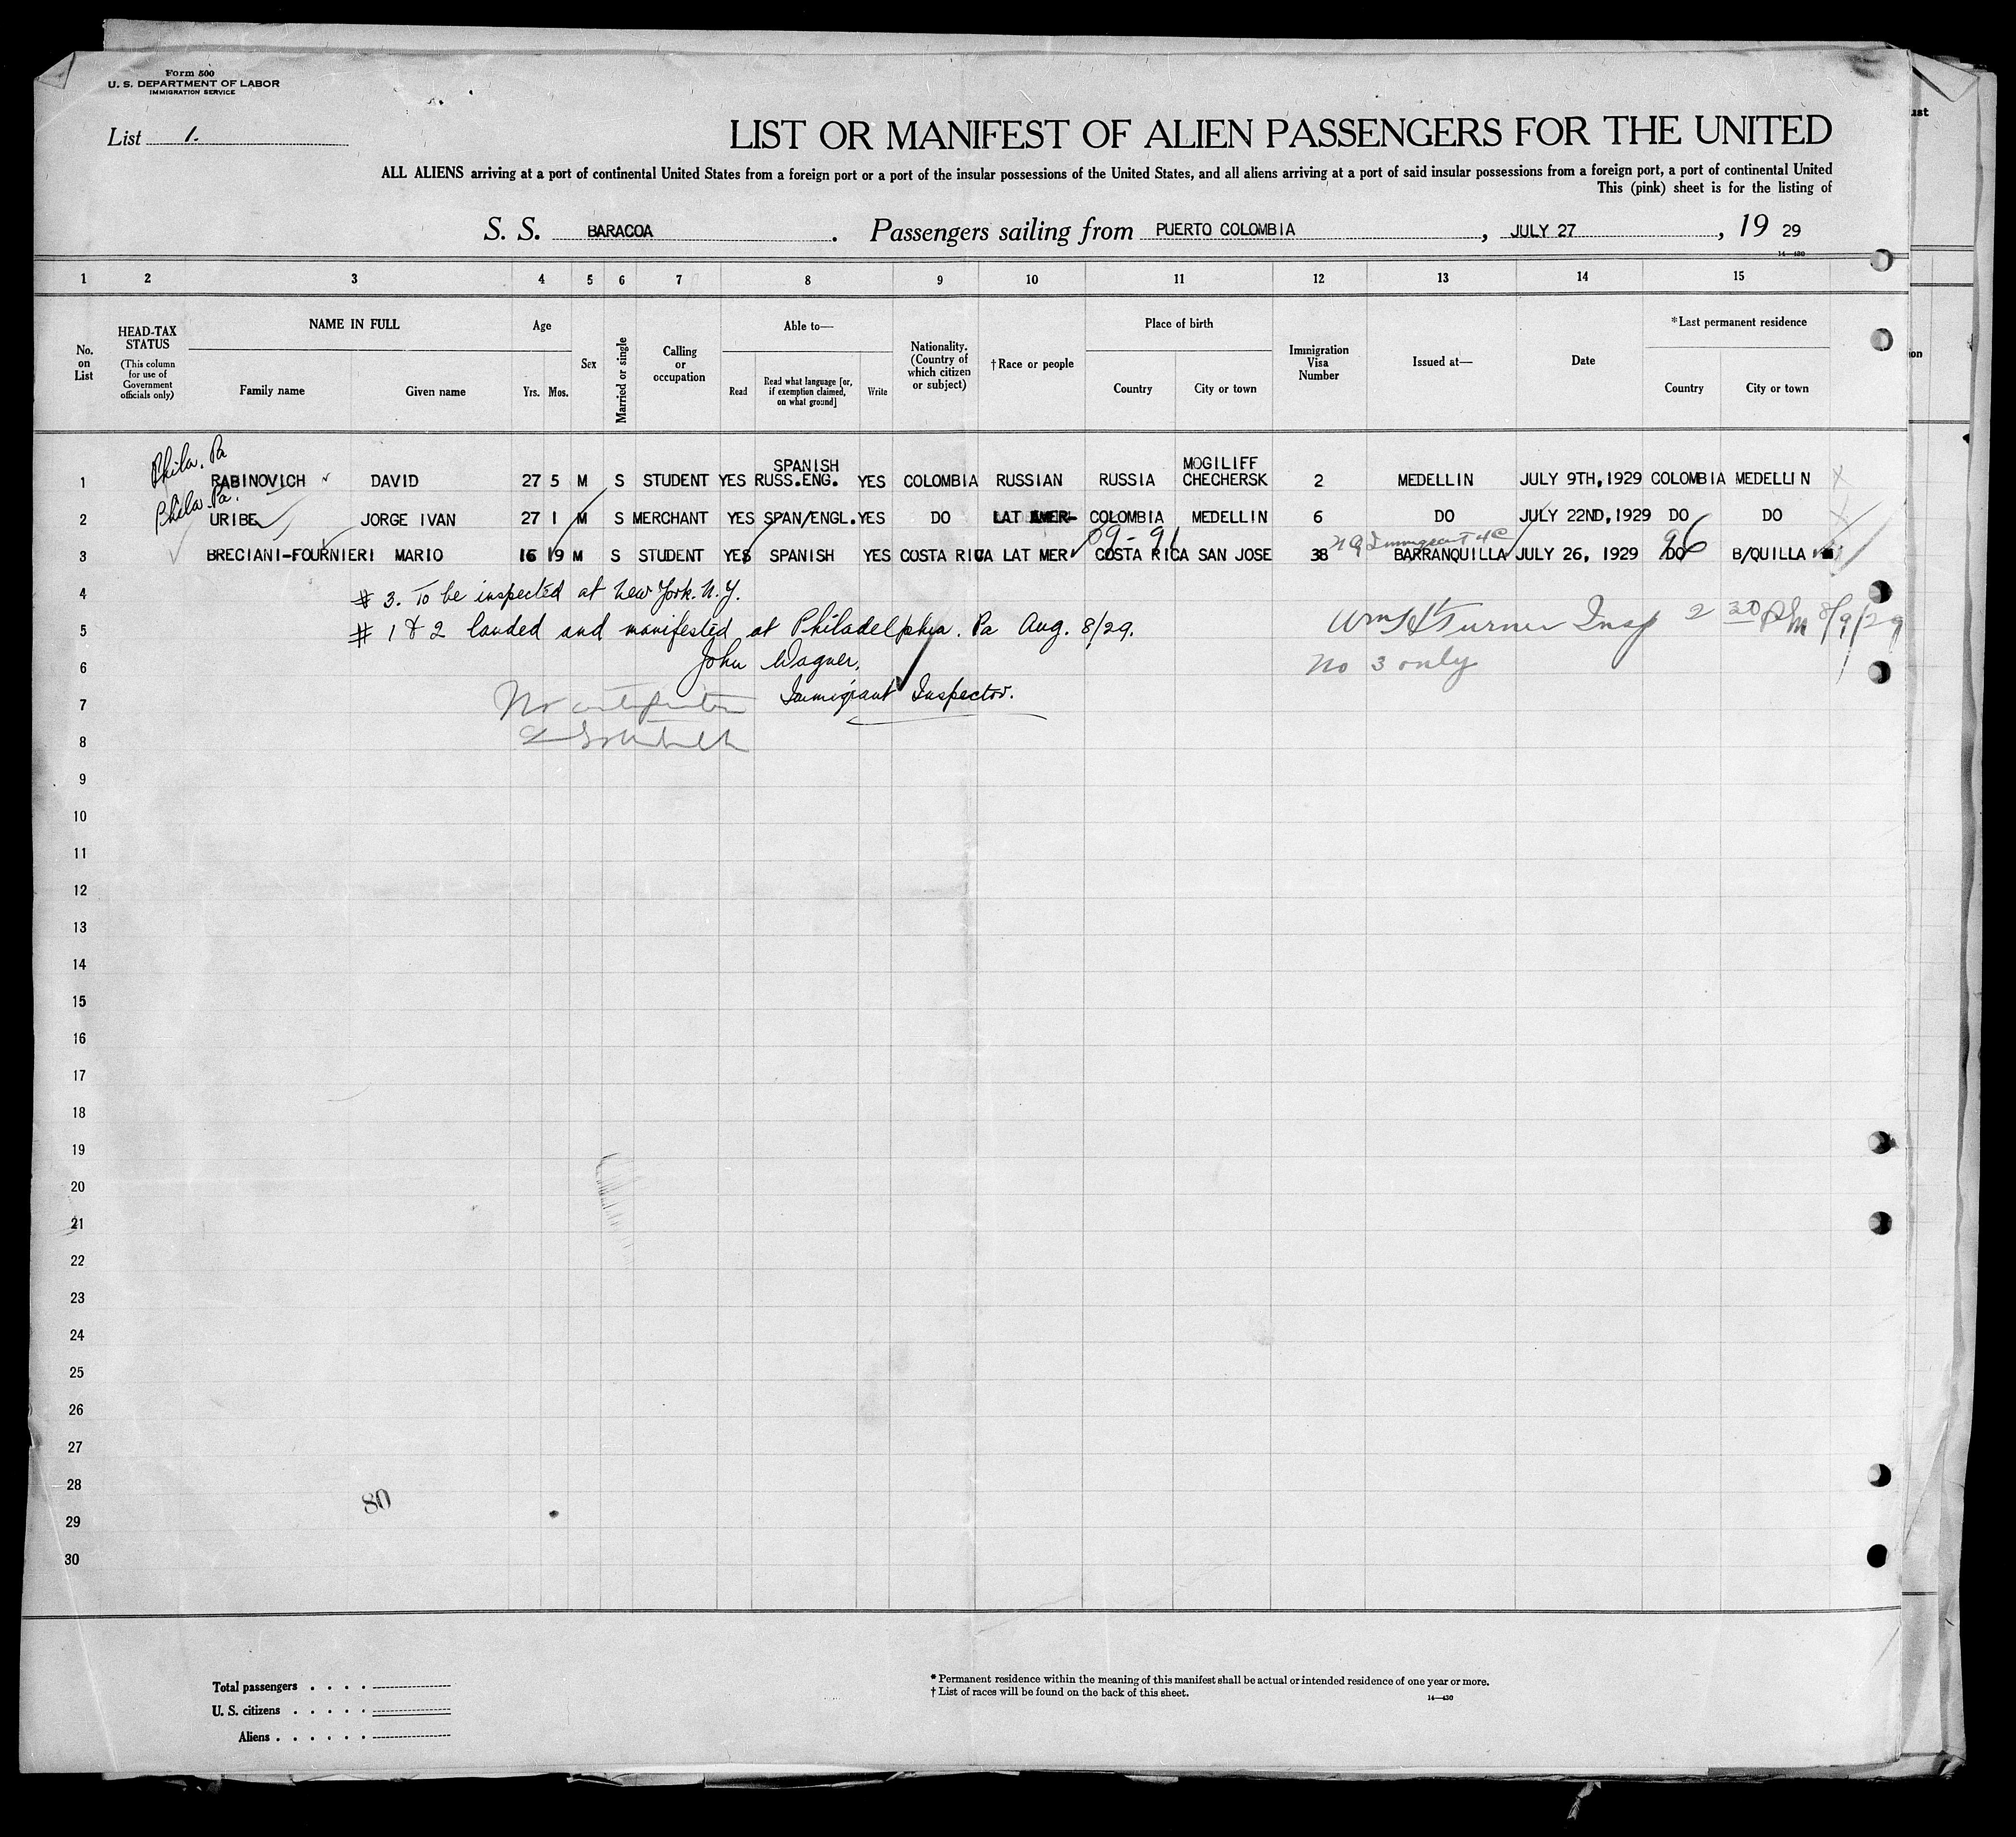 Form 500
U. S. DEPARTMENT OF LABOR
IMMIGRATION SERVICE
List 1.
LIST OR MANIFEST OF ALIEN PASSENGERS FOR THE UNITED
ALL ALIENS arriving at a port of continental United States from a foreign port or a port of the insular possessions of the United States, and all aliens arriving at a port of said insular possessions from a foreign port, a port of continental United
This (pink) sheet is for the listing of
S. S. BARACOA . Passengers sailing from PUERTO COLOMBIA , JULY 27 , 19 29
14—430
1 2 3 4 5 6 7 8 9 10 11 12 13 14 15
No. on List
HEAD-TAX STATUS
(This column for use of Government officials only)
NAME IN FULL
Family name Given name
Age
Yrs. Mos.
Sex
Married or single
Calling or occupation
Able to—
Read
Read what language [or, if exemption claimed, on what ground]
Write
Nationality. (Country of which citizen or subject)
†Race or people
Place of birth
Country City or town
Immigration Visa Number
Issued at—
Date
*Last permanent residence
Country City or town
Phila. Pa
SPANISH MOGILIFF
1 RABINOVICH DAVID 27 5 M S STUDENT YES RUSS.ENG. YES COLOMBIA RUSSIAN RUSSIA CHECHERSK 2 MEDELLIN JULY 9TH, 1929 COLOMBIA MEDELLIN
Phila. Pa.
2 URIBE JORGE IVAN 27 1 M S MERCHANT YES SPAN/ENGL. YES DO LAT AMER- COLOMBIA MEDELLIN 6 DO JULY 22ND, 1929 DO DO
09-91 96
3 BRECIANI-FOURNIERI MARIO 16 19 M S STUDENT YES SPANISH YES COSTA RICA LAT MER COSTA RICA SAN JOSE 38 BARRANQUILLA JULY 26, 1929 DO B/QUILLA
4 # 3. To be inspected at New York. N.Y.
5 # 1 & 2 landed and manifested at Philadelphia. Pa Aug. 8/29. Wm H Turner Insp 2 30 PM 8/9/29
6 John Wagner, No 3 only
7 Immigrant Inspector.
8
9
10
11
12
13
14
15
16
17
18
19
20
21
22
23
24
25
26
27
28
80
29
30
Total passengers . . . .
U. S. citizens . . . . .
Aliens . . . . . .
* Permanent residence within the meaning of this manifest shall be actual or intended residence of one year or more.
† List of races will be found on the back of this sheet.
14—430